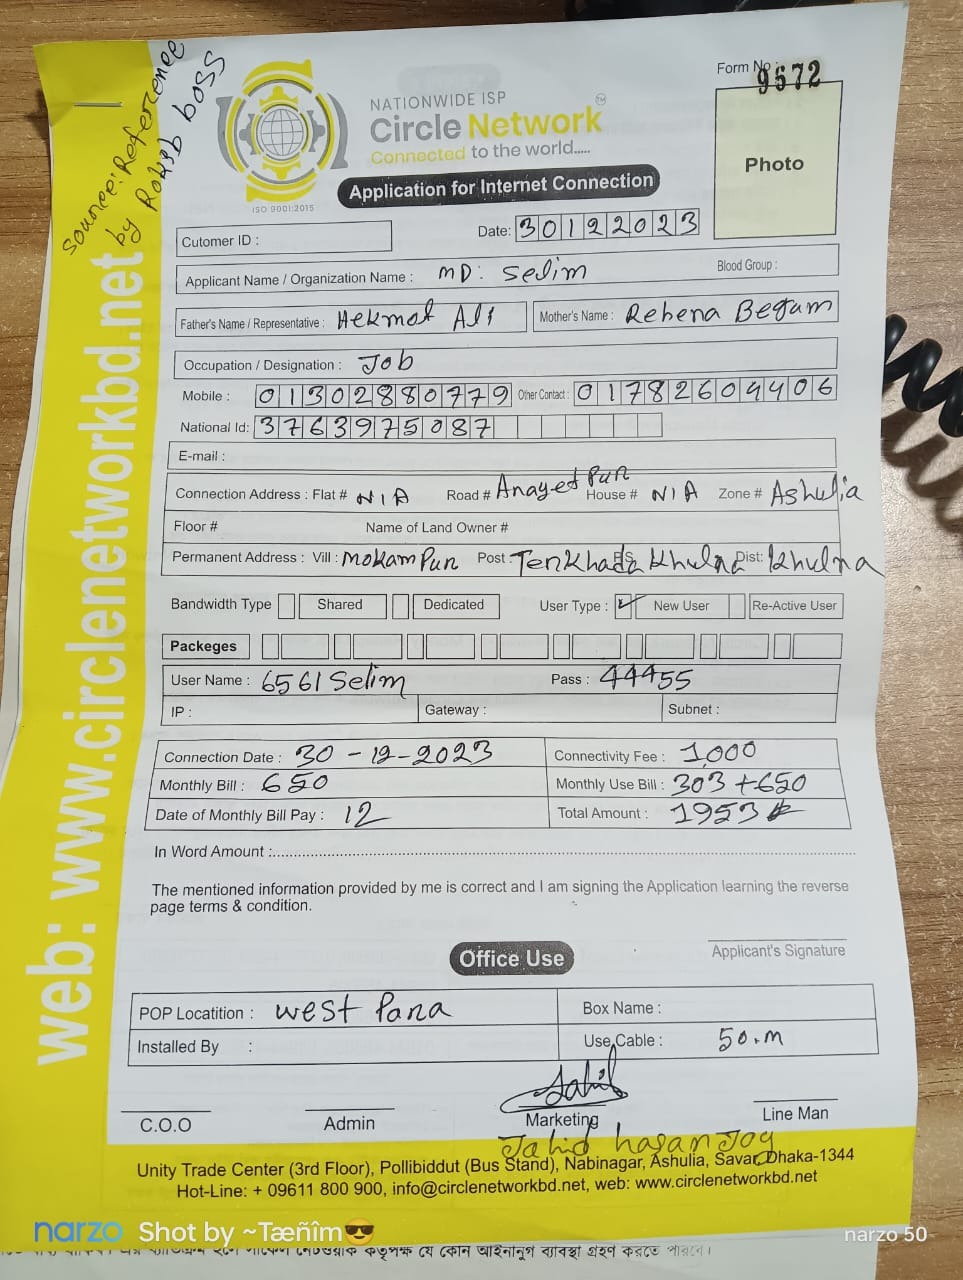 Source: Reference
by Rakib boss
Form No : 9572
NATIONWIDE ISP
Circle Network TM
Connected to the world.....
ISO 9001:2015
Photo
Application for Internet Connection
Cutomer ID :
Date: 30122023
Applicant Name / Organization Name : MD: Selim Blood Group :
Father's Name / Representative : Hekmat Ali Mother's Name : Rehena Begum
Occupation / Designation : Job
Mobile : 01302880779 Other Contact : 01782609406
National Id: 3763975087
E-mail :
Connection Address : Flat # N/A Road # Anayet Pur House # N/A Zone # Ashulia
Floor # Name of Land Owner #
Permanent Address : Vill : Mokam Pur Post : Tenkhada P.S Khulna Dist: Khulna
Bandwidth Type Shared Dedicated User Type : ✓ New User Re-Active User
Packeges
User Name : 6561Selim Pass : 44455
IP : Gateway : Subnet :
Connection Date : 30-12-2023 Connectivity Fee : 1,000
Monthly Bill : 650 Monthly Use Bill : 303+650
Date of Monthly Bill Pay : 12 Total Amount : 1953
In Word Amount :
The mentioned information provided by me is correct and I am signing the Application learning the reverse
page terms & condition.
Applicant's Signature
Office Use
POP Locatition : West Para Box Name :
Installed By : Use Cable : 50.m
C.O.O Admin Marketing Line Man
Jahid hasan Joy
Unity Trade Center (3rd Floor), Pollibiddut (Bus Stand), Nabinagar, Ashulia, Savar, Dhaka-1344
Hot-Line: + 09611 800 900, info@circlenetworkbd.net, web: www.circlenetworkbd.net
web: www.circlenetworkbd.net
narzo Shot by ~Tæñîm😎 narzo 50
নেটওয়ার্ক কর্তৃপক্ষ যে কোন আইনানুগ ব্যাবস্থা গ্রহণ করতে পারবে।